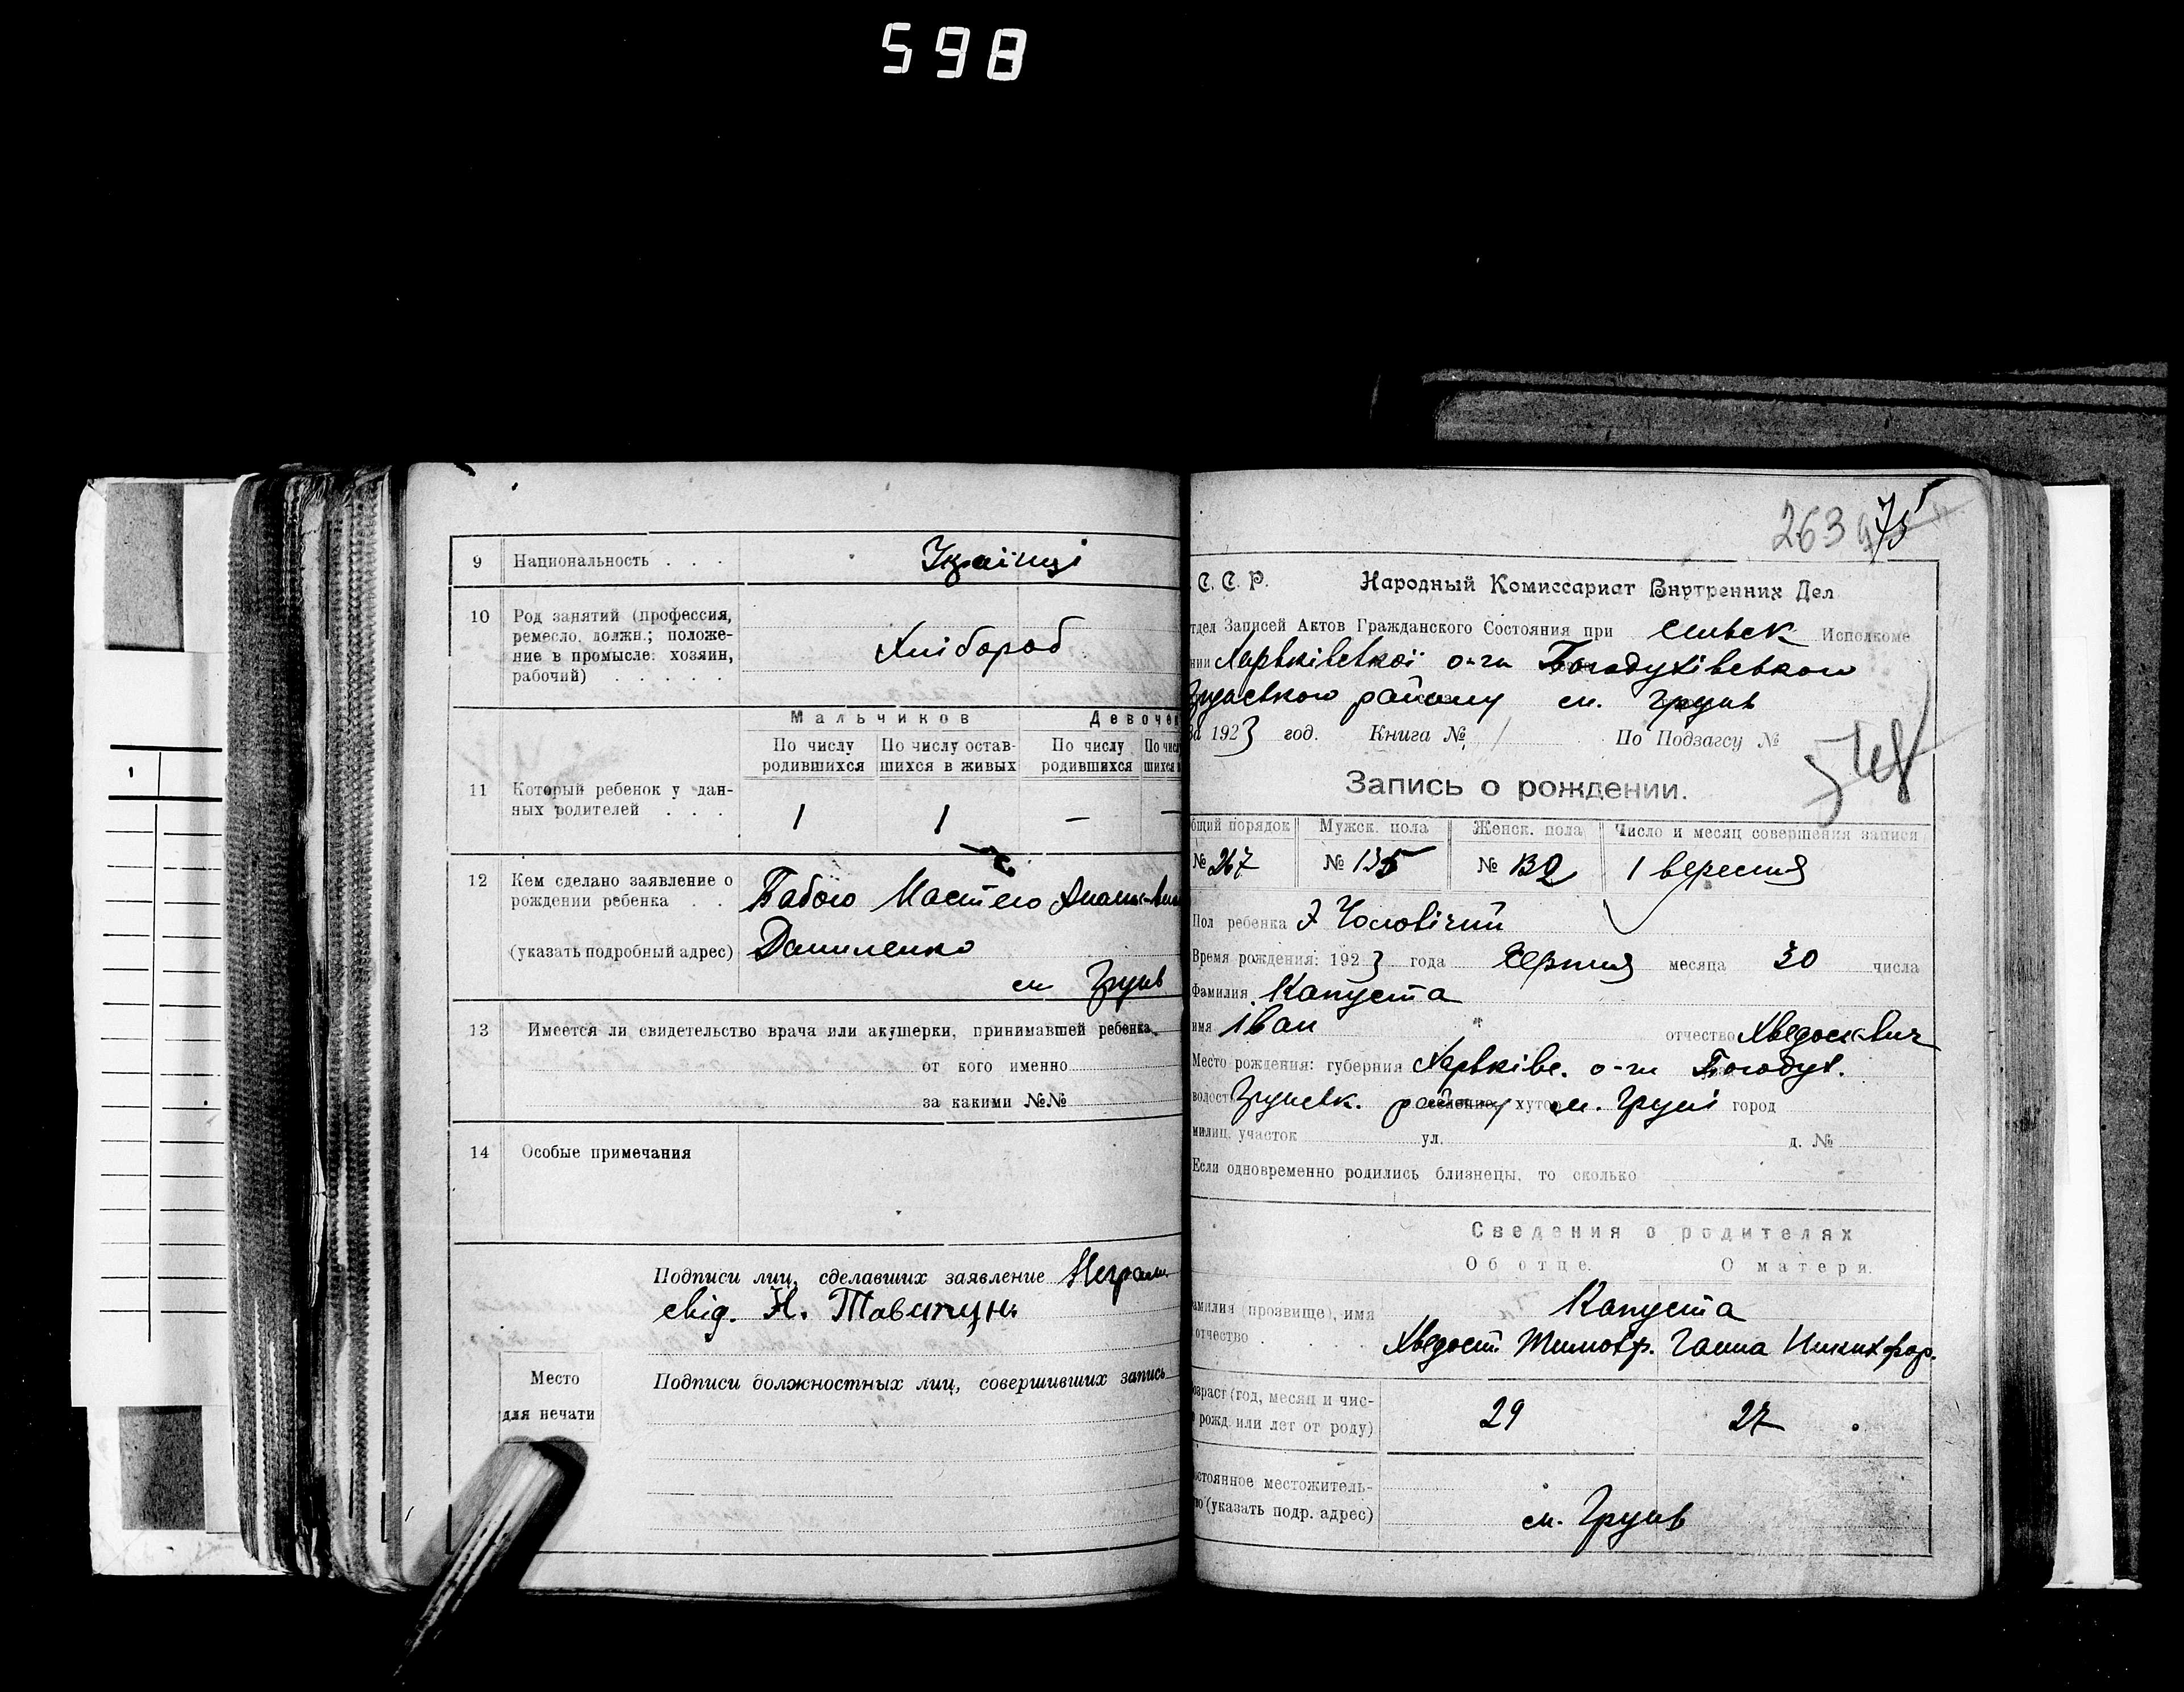 598
9 Национальность . . . Українці
10 Род занятий (профессия,
ремесло, должн.; положе-
ние в промысле: хозяин,
рабочий) . . . . .
Хлібороб
Мальчиков
По числу родившихся
По числу остав-
шихся в живых
По числу родившихся
11 Который ребенок у дан-
ных родителей . . .
1 1 — —
12 Кем сделано заявление о
рождении ребенка . .
(указать подробный адрес)
Бабою
Даниленко
см Грунь
13 Имеется ли свидетельство врача или акушерки, принимавшей ребенка
от кого именно
за какими №№
14 Особые примечания
Подписи лиц, сделавших заявление
свід. Н.
Подписи должностных лиц, совершивших запись
Место
для печати
263
75
С. С. Р. Народный Комиссариат Внутренних Дел
Записей Актов Гражданского Состояния при Сільськ
Харьківської о-ги Богодухівського
району см. Грунь
1923 год. Книга № 1 По Подзагсу №
Запись о рождении.
порядок Мужск. пола Женск. пола Число и месяц совершения записи
№ 267 № 135 № 132 1 вересня
Пол ребенка Чоловічий
Время рождения: 1923 года Серпня месяца 30 числа
Фамилия Капуста
имя Іван отчество
Место рождения: губерния Харьківс. о-ги Богодух.
Грунськ. району хутор см. Груні город
милиц. участок ул. д. №
Если одновременно родились близнецы, то сколько
Сведения о родителях
Об отце. О матери.
(прозвище), имя Капуста
отчество . . . . Хведост Тимофр. Ганна Никихфор.
(год, месяц и чис-
рожд. или лет от роду) 29 27
местожитель-
(указать подр. адрес) см. Грунь